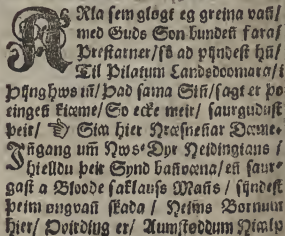 ARla sem gløgt eg greina vañ/
med Guds Son bundeñ fara/
Prestarner/ so ad pyndest hñ/
Til Pilatum Landsdoomara/ i
Þijng hws iñ/ Þad sama Siñ/ sagt er þo
eingeñ kiæme/ So ecke meir/ saurgudust
þeir/ ☞ Siaa hier Hræsneñar Dæme.
Jñgang um̃ Hws-Dyr Heidingians /
hielldu þeir Synd bañvæna/ eñ saur-
gast a Bloode saklauss Mañs / sijndest
þeim øngvañ skada / Heims Børnum
hier/ Þoirding er/ Aumstøddum Hialp